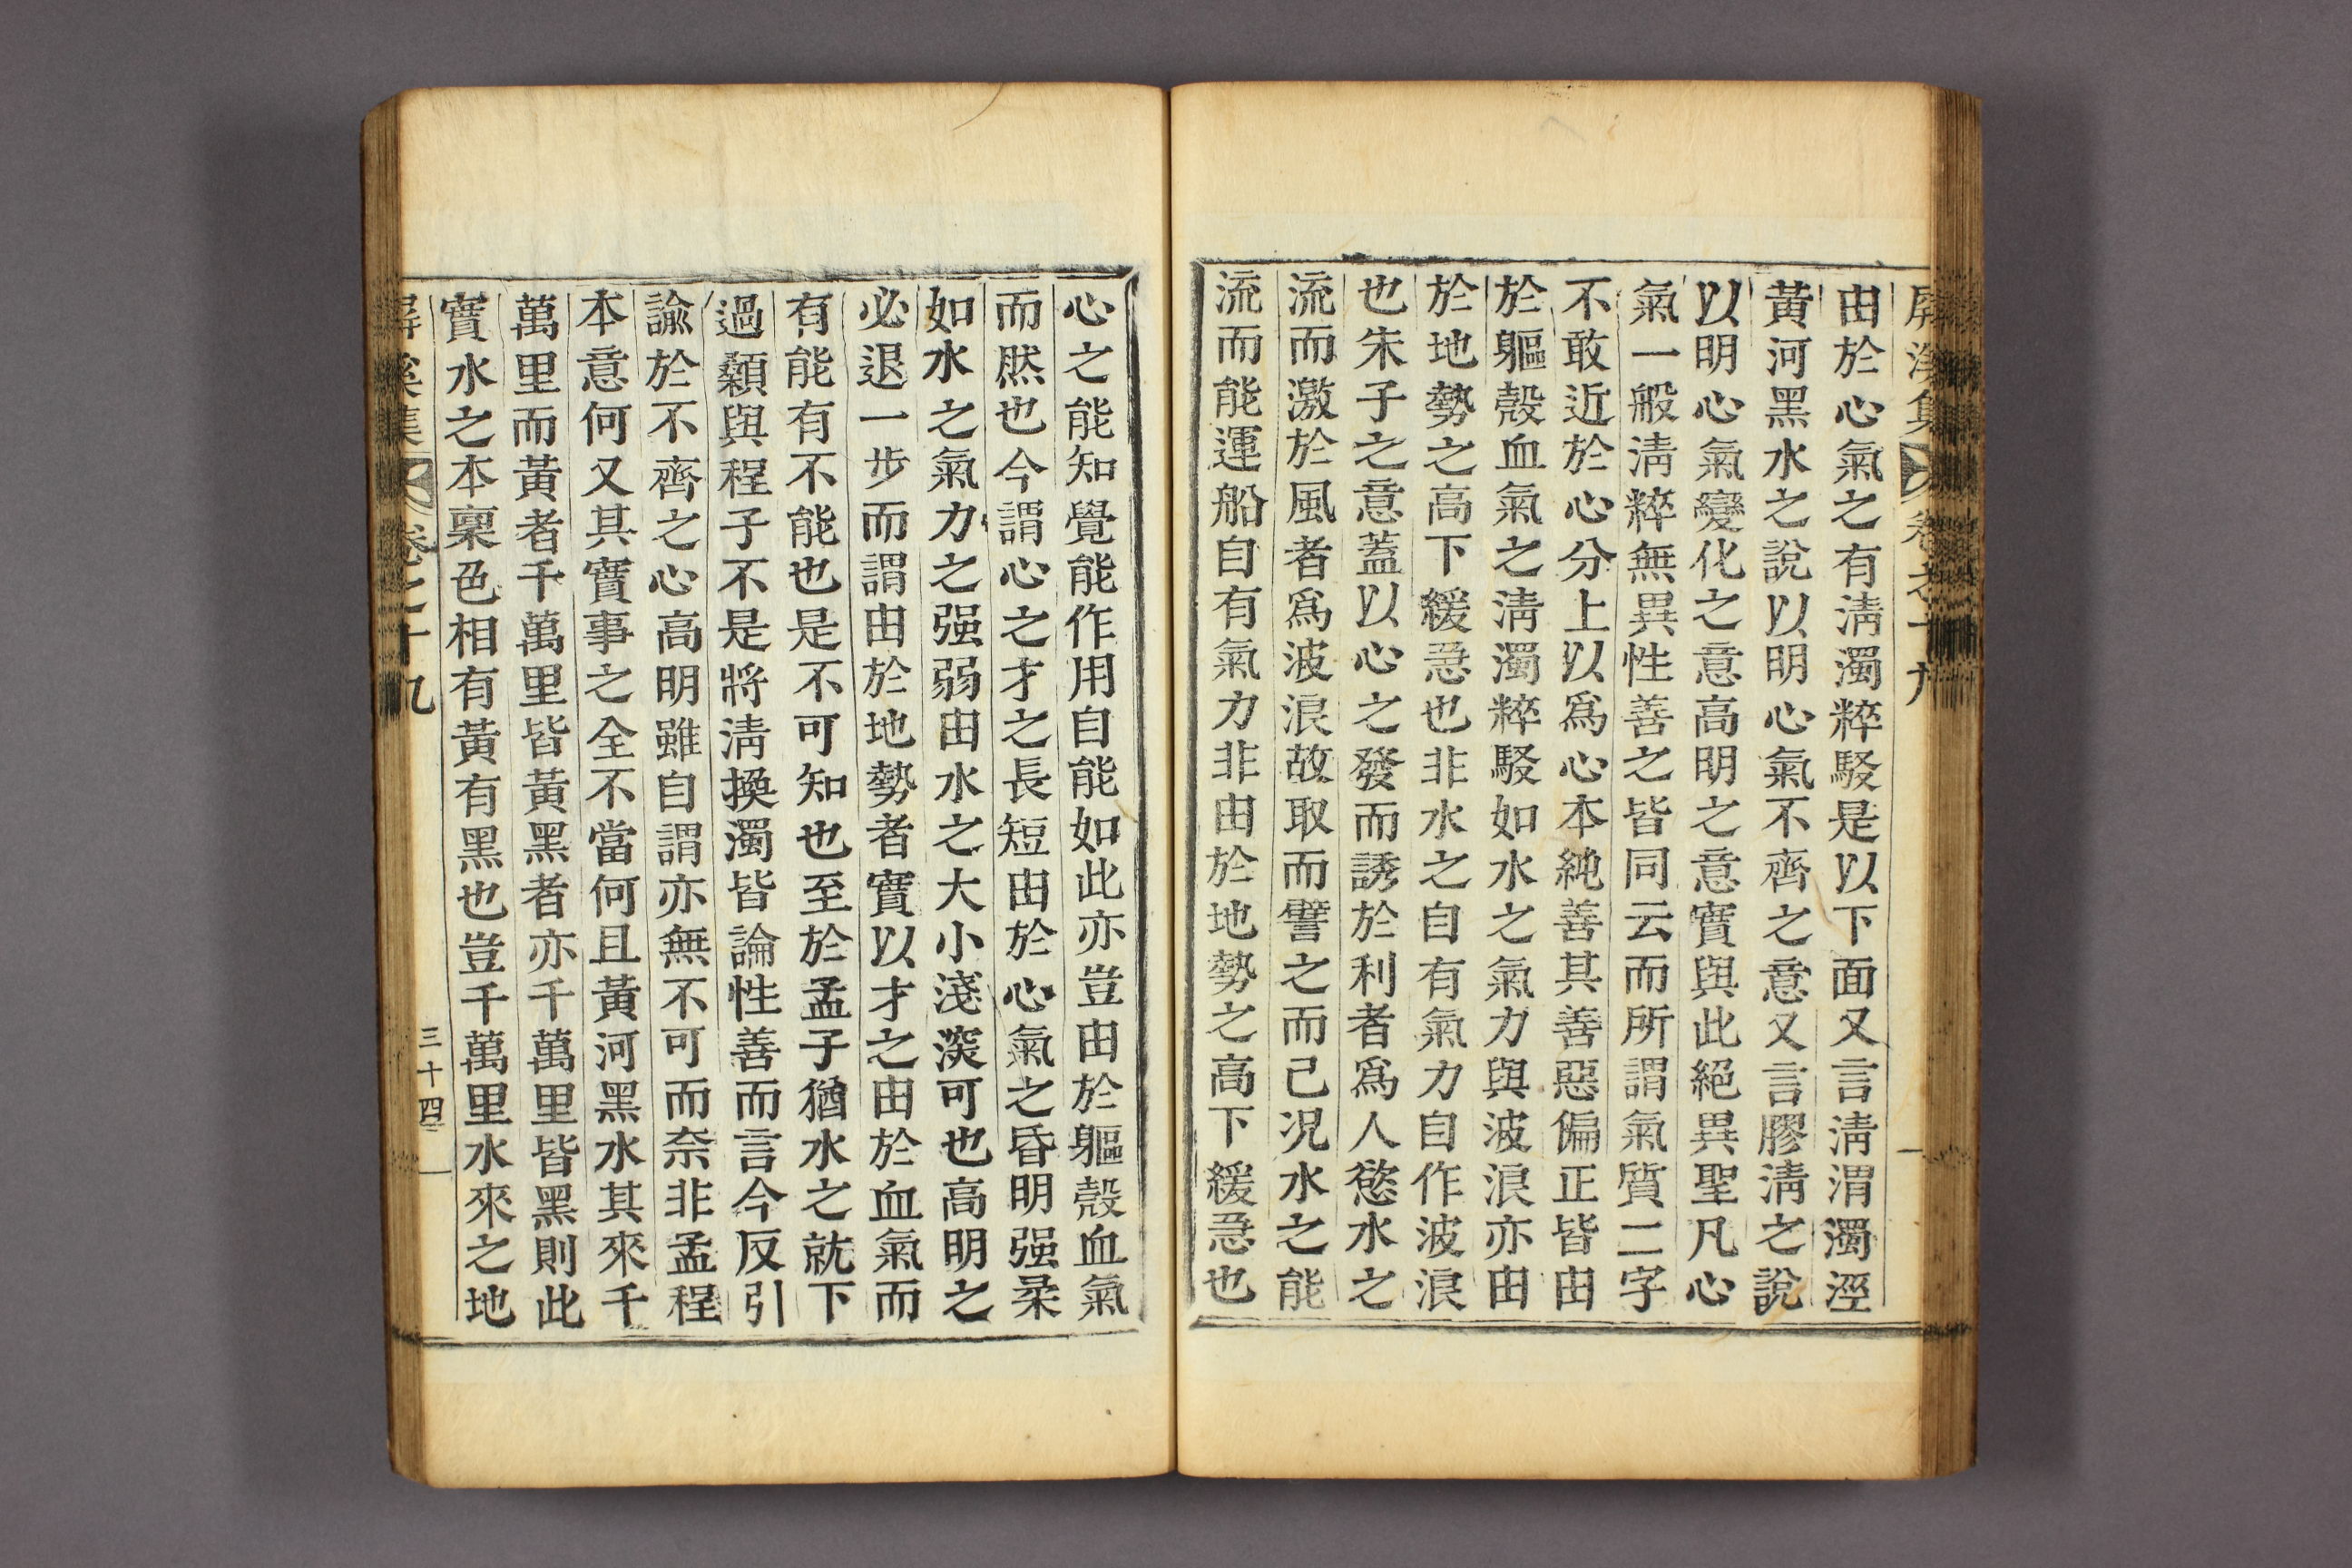 屛溪集 卷之十九
由於心氣之有淸濁粹駁是以下面又言淸渭濁涇
黃河黑水之說以明心氣不齊之意又言膠淸之說
以明心氣變化之意高明之意實與此絕異聖凡心
氣一般淸粹無異性善之皆同云而所謂氣質二字
不敢近於心分上以爲心本純善其善惡偏正皆由
於軀殼血氣之淸濁粹駁如水之氣力與波浪亦由
於地勢之高下緩急也非水之自有氣力自作波浪
也朱子之意蓋以心之發而誘於利者爲人慾水之
流而激於風者爲波浪故取而譬之而已况水之能
流而能運船自有氣力非由於地勢之高下緩急也
心之能知覺能作用自能如此亦豈由於軀殼血氣
而然也今謂心之才之長短由於心氣之昏明强柔
如水之氣力之强弱由水之大小淺深可也高明之
必退一步而謂由於地勢者實以才之由於血氣而
有能有不能也是不可知也至於孟子猶水之就下
過顙與程子不是將淸換濁皆論性善而言今反引
諭於不齊之心高明雖自謂亦無不可而奈非孟程
本意何又其實事之全不當何且黃河黑水其來千
萬里而黃者千萬里皆黃黑者亦千萬里皆黑則此
實水之本稟色相有黃有黑也豈千萬里水來之地
屛溪集 卷之十九 三十四